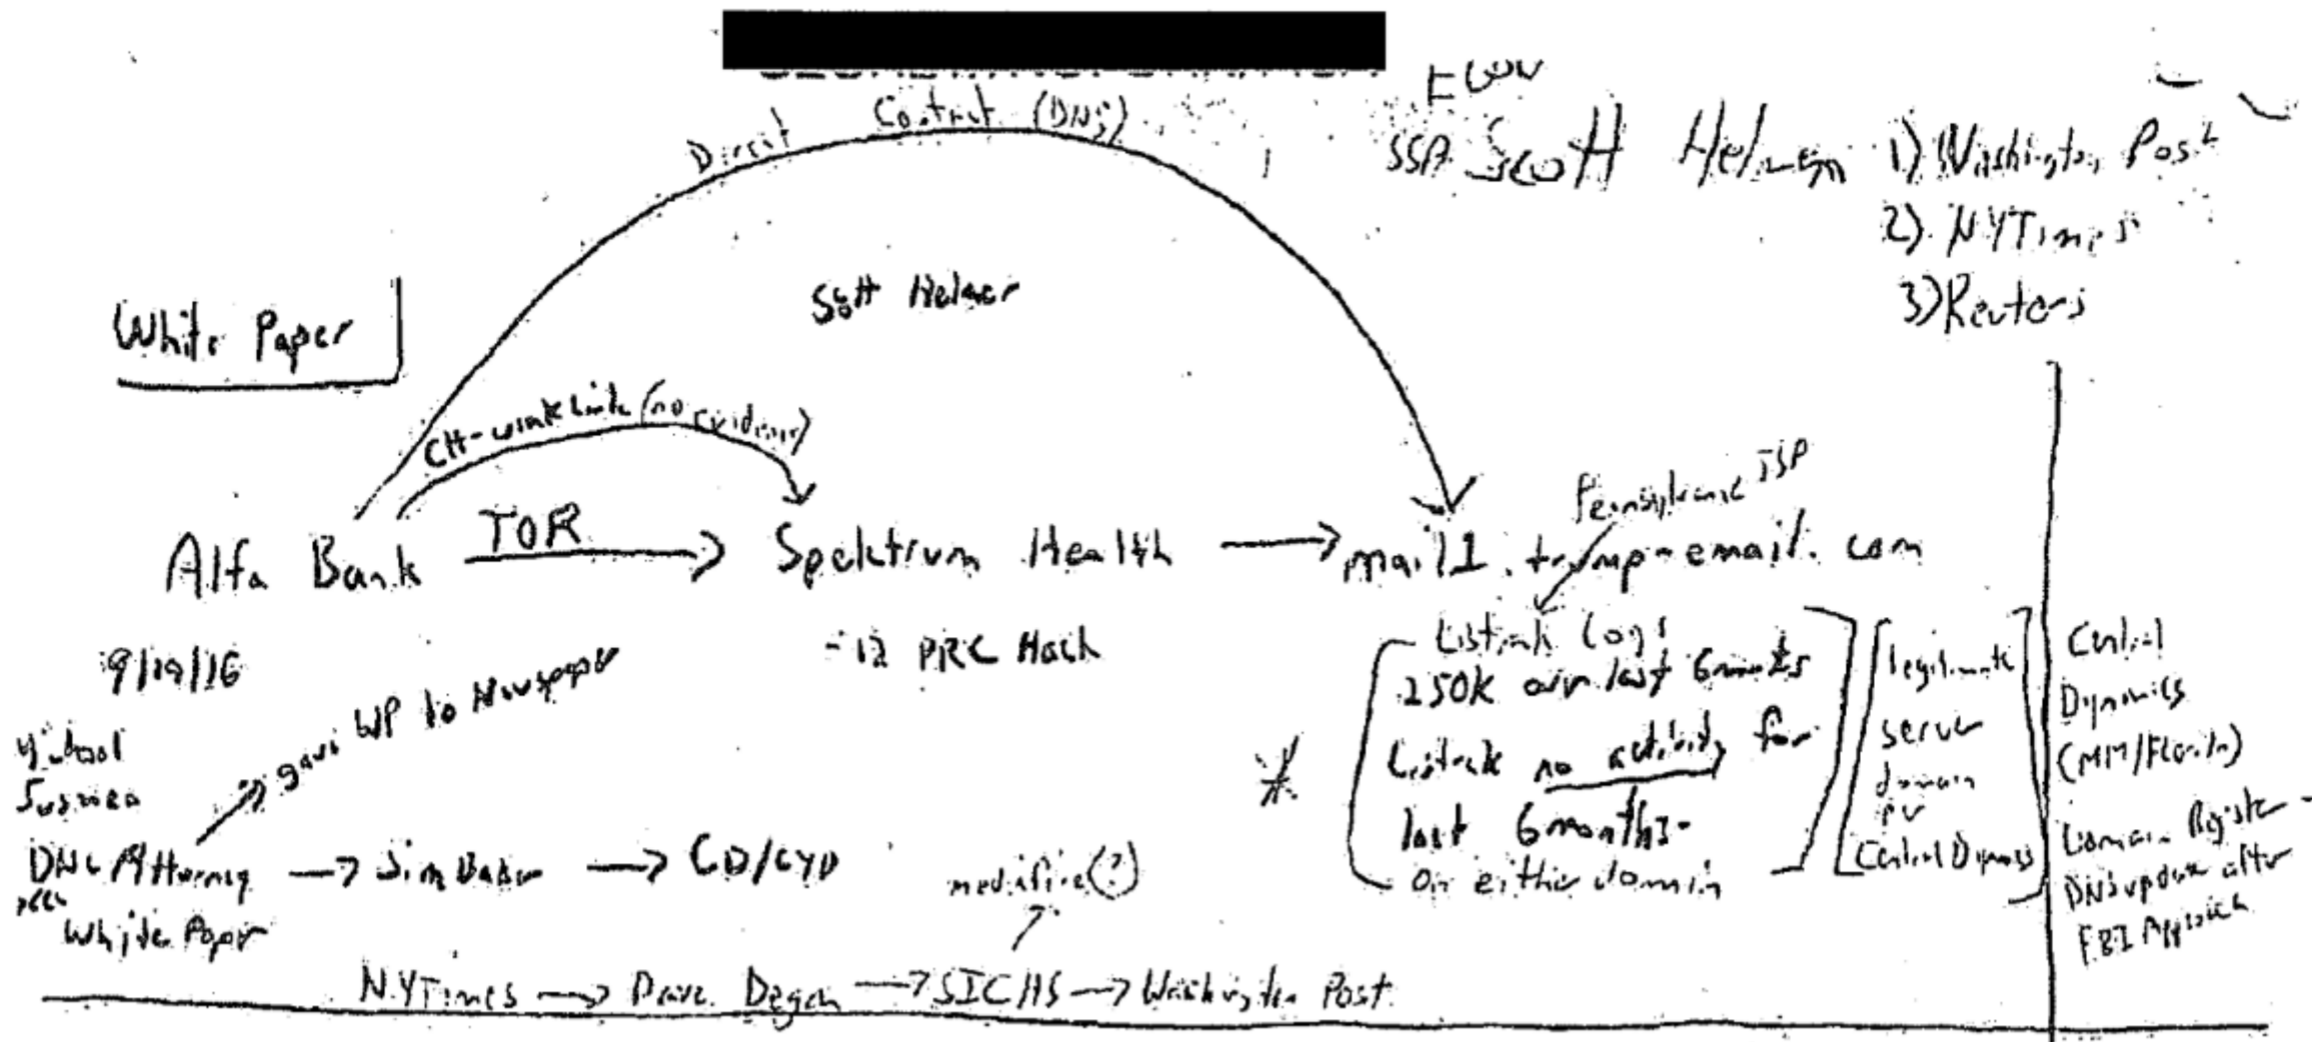 Direct Contact (DNS)
SSA Scott Hellman
1) Washington Post
2) NYTimes
3) Reuters
Scott Hellman
White Paper
CH-weak link (no evidence)
Pennsylvania ISP
Alfa Bank TOR Spektrum Health mail1.trump-email.com
9/19/16
- 12 PRC Hack
gave WP to Newspaper
Listrak Logs
250K over last 6 months
Listrak no activity for
last 6 months-
on either domain
legitimate
server
domain
per
Central Dynamics
Central
Dynamics
(MM/Florida)
Domain Register -
DNS update after
FBI Approach
Michael
Sussman
DNC Attorney Jim Baker CD/CYD
White Paper
mediafire(?)
NYTimes Dave Dagon SICHS Washington Post